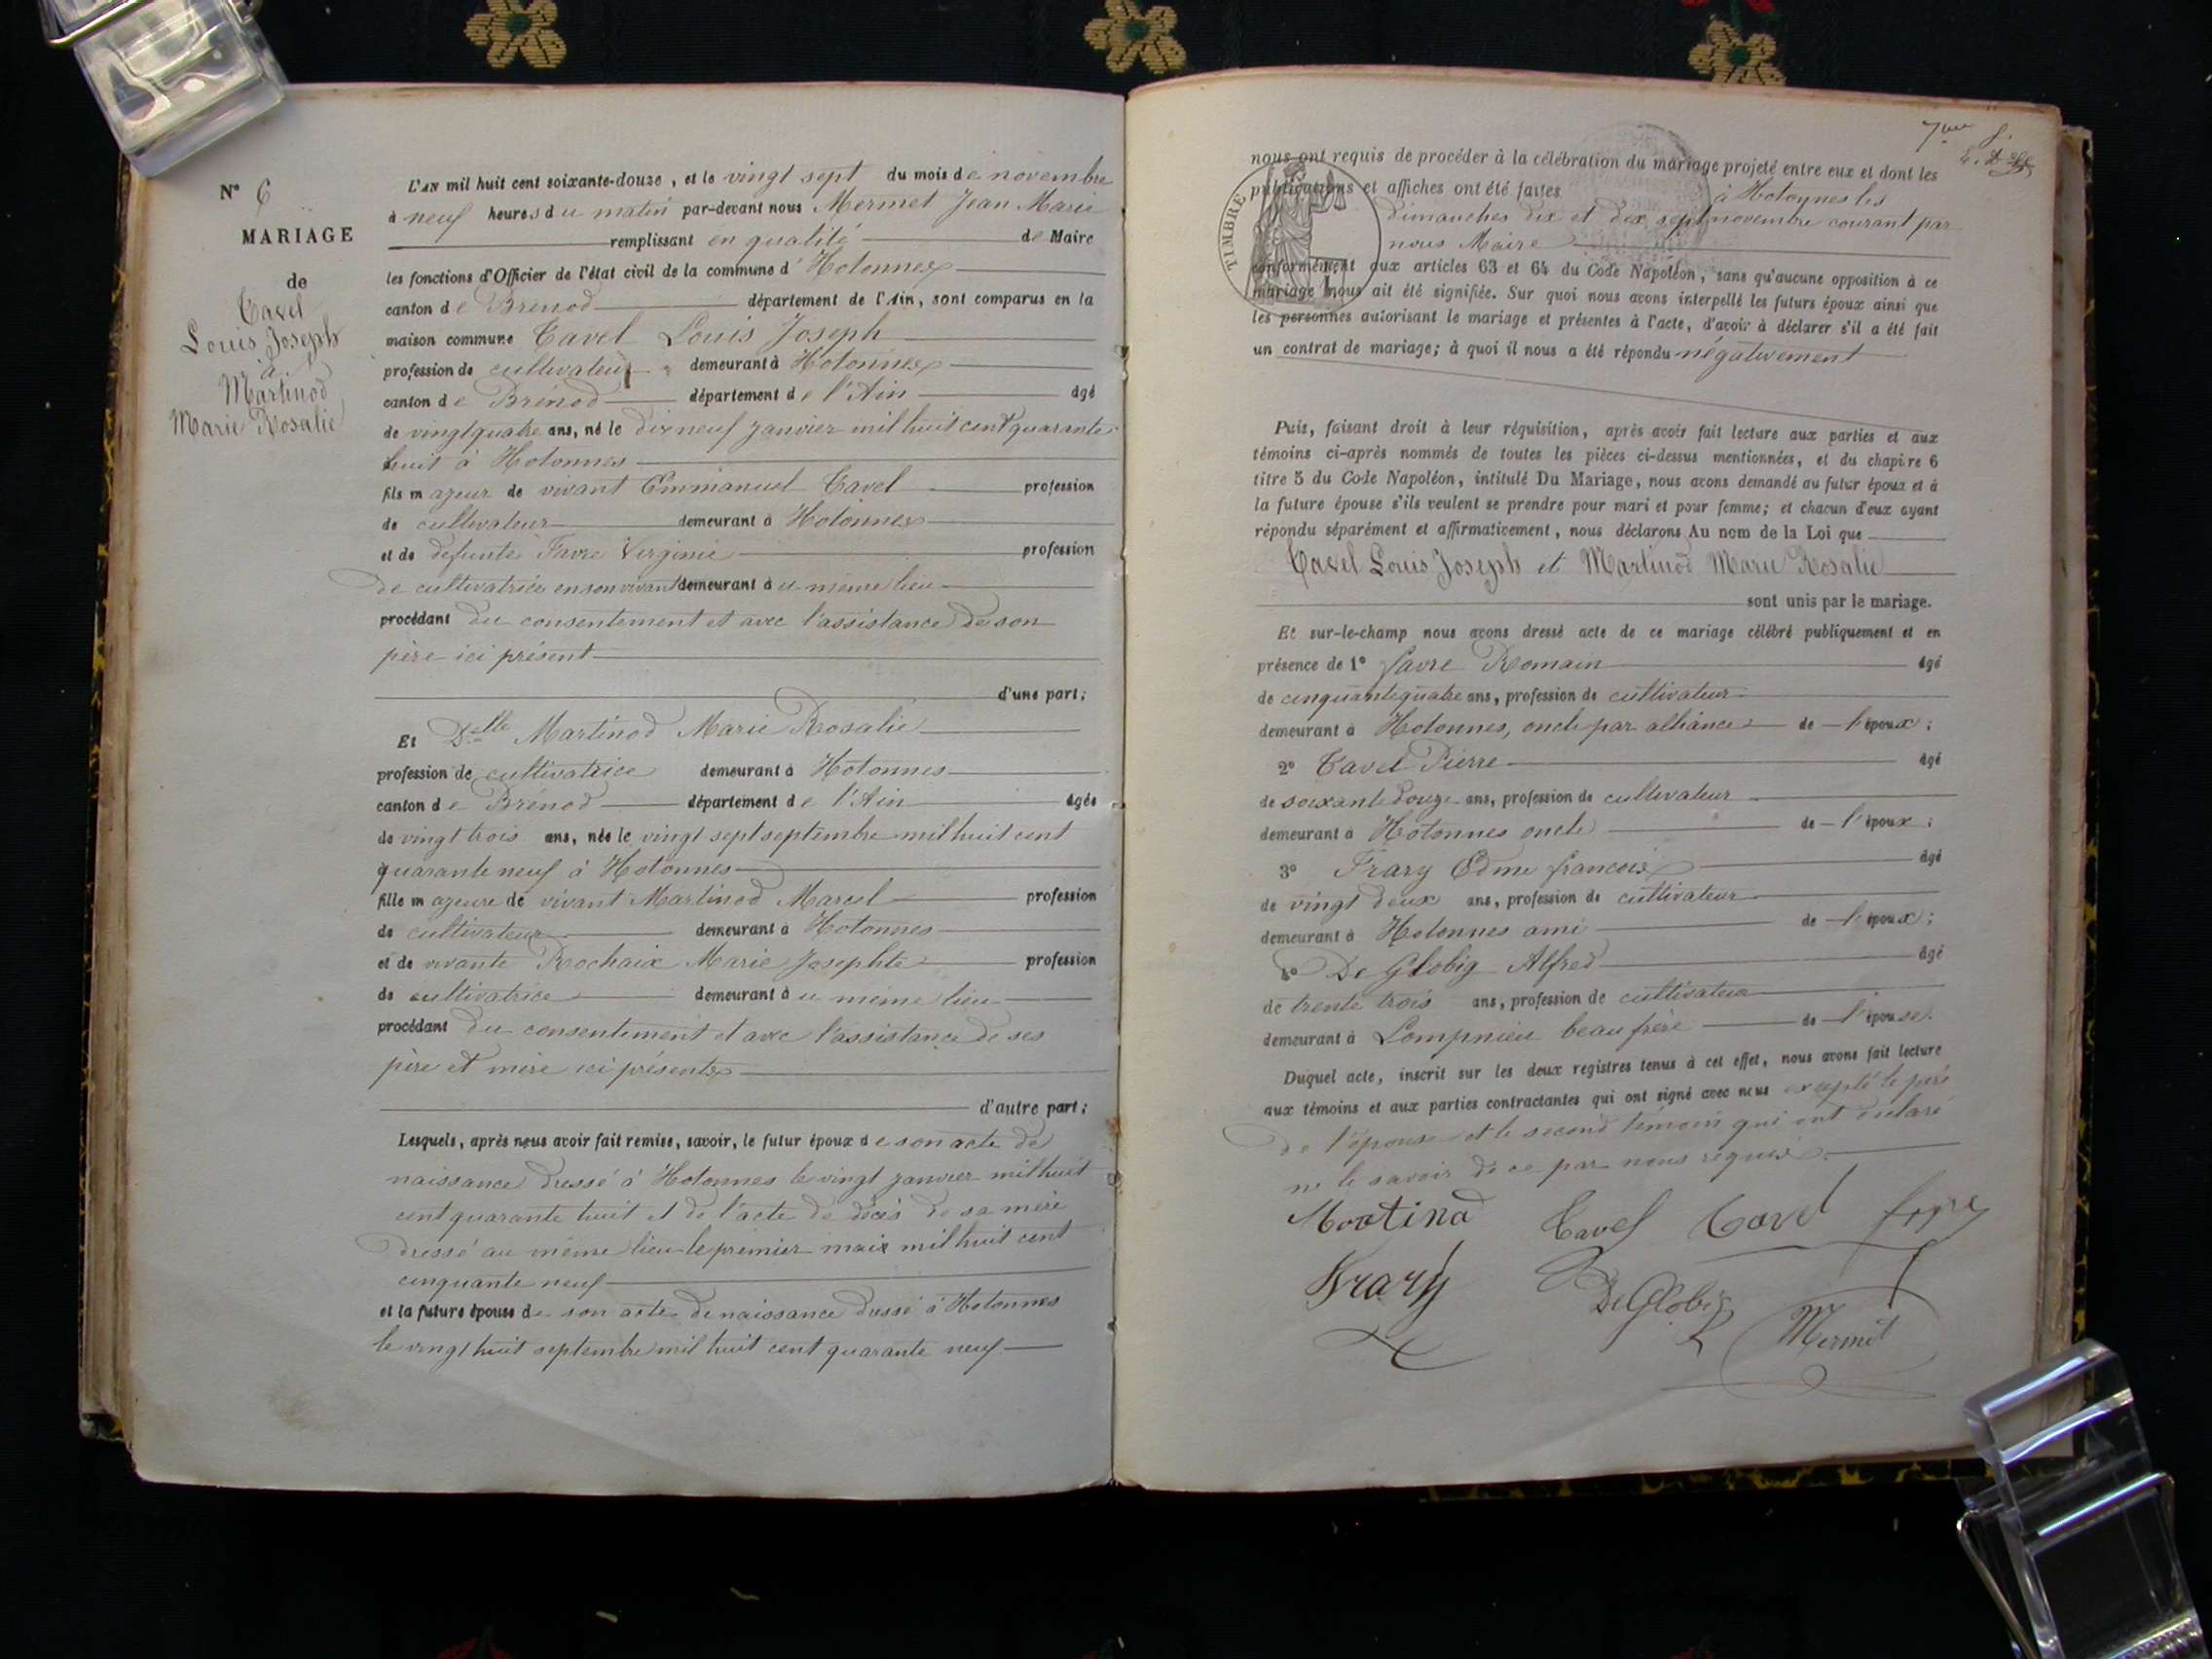 N° 6
MARIAGE
de
Tavel
Louis Joseph
à
Martinod
Marie Rosalie
L'AN mil huit cent soixante-douze, et le vingt sept du mois de novembre
à neuf heures du matin par-devant nous Mermet Jean Marie
remplissant en qualité de Maire
les fonctions d'Officier de l'état civil de la commune d' Hotonnes
canton de Brénod département de l'Ain, sont comparus en la
maison commune Tavel Louis Joseph
profession de cultivateur demeurant à Hotonnes
canton de Brénod département de l'Ain âgé
de vingt quatre ans, né le dix neuf janvier mil huit cent quarante
huit à Hotonnes
fils majeur de vivant Emmanuel Tavel profession
de cultivateur demeurant à Hotonnes
et de défunte Favre Virginie profession
de cultivatrice en son vivant demeurant au même lieu
procédant du consentement et avec l'assistance de son
père ici présent
d'une part;
Et Delle Martinod Marie Rosalie
profession de cultivatrice demeurant à Hotonnes
canton de Brénod département de l'Ain âgée
de vingt trois ans, née le vingt sept septembre mil huit cent
quarante neuf à Hotonnes
fille majeure de vivant Martinod Marcel profession
de cultivateur demeurant à Hotonnes
et de vivante Rochaix Marie Josephte profession
de cultivatrice demeurant au même lieu
procédant du consentement et avec l'assistance de ses
père et mère ici présents
d'autre part;
Lesquels, après nous avoir fait remise, savoir, le futur époux de son acte de
naissance dressé à Hotonnes le vingt janvier mil huit
cent quarante huit et de l'acte de décès de sa mère
dressé au même lieu le premier mai mil huit cent
cinquante neuf
et la future épouse de son acte de naissance dressé à Hotonnes
le vingt huit septembre mil huit cent quarante neuf
7me f.
nous ont requis de procéder à la célébration du mariage projeté entre eux et dont les
publications et affiches ont été faites à Hotonnes les
dimanches dix et dix sept novembre courant par
nous Maire
TIMBRE
conformément aux articles 63 et 64 du Code Napoléon, sans qu'aucune opposition à ce
mariage nous ait été signifiée. Sur quoi nous avons interpellé les futurs époux ainsi que
les personnes autorisant le mariage et présentes à l'acte, d'avoir à déclarer s'il a été fait
un contrat de mariage; à quoi il nous a été répondu négativement
Puis, faisant droit à leur réquisition, après avoir fait lecture aux parties et aux
témoins ci-après nommés de toutes les pièces ci-dessus mentionnées, et du chapitre 6
titre 5 du Code Napoléon, intitulé Du Mariage, nous avons demandé au futur époux et à
la future épouse s'ils veulent se prendre pour mari et pour femme; et chacun d'eux ayant
répondu séparément et affirmativement, nous déclarons Au nom de la Loi que
Tavel Louis Joseph et Martinod Marie Rosalie
sont unis par le mariage.
Et sur-le-champ nous avons dressé acte de ce mariage célébré publiquement et en
présence de 1° Favre Romain âgé
de cinquante quatre ans, profession de cultivateur
demeurant à Hotonnes, oncle par alliance de l'époux;
2° Tavel Pierre âgé
de soixante douze ans, profession de cultivateur
demeurant à Hotonnes oncle de l'époux;
3° Frary Edme françois âgé
de vingt deux ans, profession de cultivateur
demeurant à Hotonnes ami de l'époux;
4° De Globig Alfred âgé
de trente trois ans, profession de cultivateur
demeurant à Lompnieu beau frère de l'épouse.
Duquel acte, inscrit sur les deux registres tenus à cet effet, nous avons fait lecture
aux témoins et aux parties contractantes qui ont signé avec nous excepté le père
de l'épouse et le second témoin qui ont déclaré
ne le savoir de ce par nous requis.
Martinod Tavel Tavel
Frary De Globig Mermet